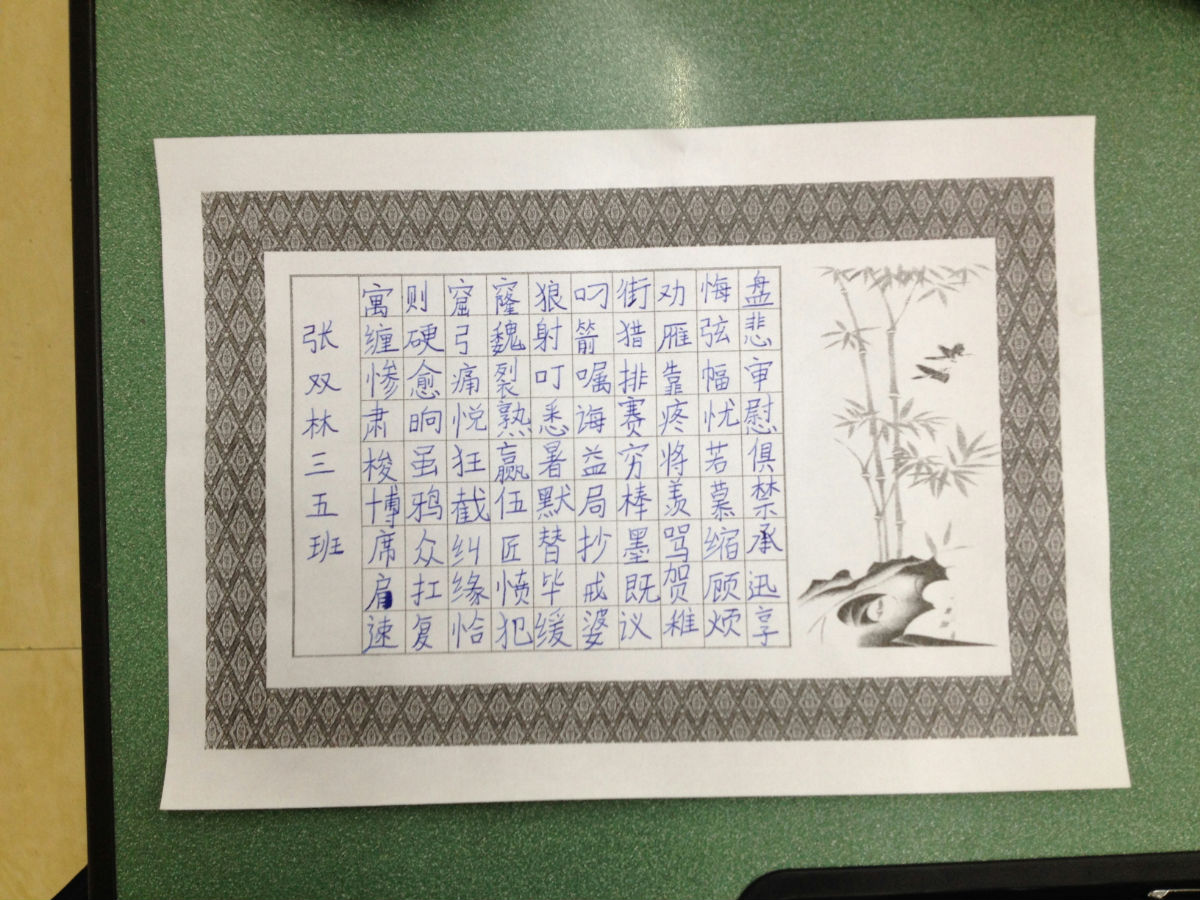 寓则窟窿狼叼街劝悔盘
缠硬弓魏射箭猎雁弦悲
惨愈痛裂叮嘱排靠幅审
肃晌悦熟悉诲赛疼忧慰
梭虽狂赢暑益穷将若俱
博鸦截伍默局棒羡慕禁
席众纠匠替抄墨骂缩承
肩扛缘愤毕戒既贺顾迅
速复恰犯缓婆议稚烦享
张双林三五班